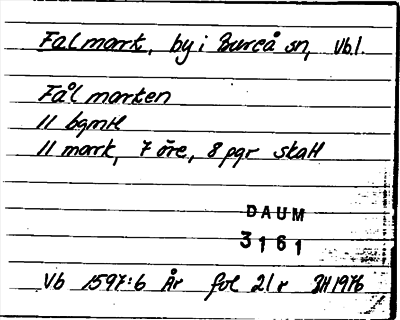 Falmark, by i Bureå sn, Vb.
Fålmarken
11 bgmtl
11 mark, 7 öre, 8 pgr skatt
DAUM
3161
Vb 1597:6 År fol 21 r BH 1976